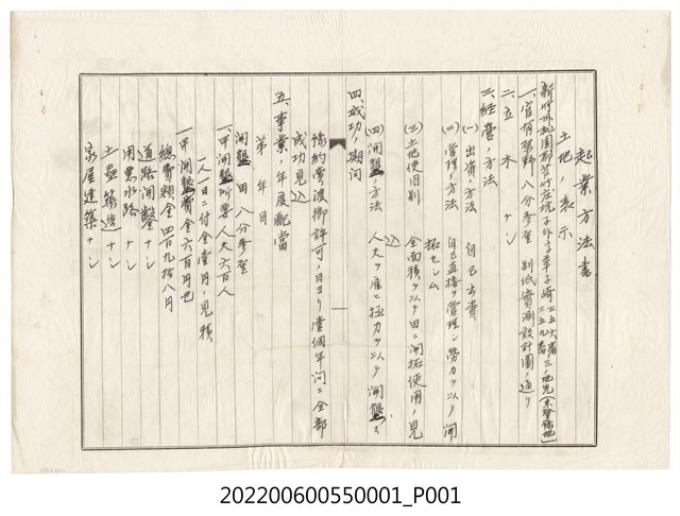 起業方法書
土地ノ表示
新竹州桃園郡芦竹庄坑子外字草子崎二五六番、二五九番ノ三、地先(未登錄地)
一、官有原野 八分參厘 別紙實測設計圖ノ通リ
二、立木 ナシ
三、經營ノ方法
(一)出資ノ方法 自己出資
(二)管理ノ方法 自己直接ヲ管理シ勞力ヲ以テ開
拓セシム
(三)土地使用別 全面積ヲ以テ田ニ開拓使用ノ見
込
(四)開墾ノ方法 人夫ヲ雇ヒ極力ヲ以テ開墾ス
四、成功ノ期間
豫約賣渡御許可ノ日ヨリ壹個年間ニ全部
成功見込
五、事業ノ年度配當
第 年目
開墾 田 八分參厘
一、甲開墾所要人夫六百人
一人一日ニ付金壹円ノ見積
一甲開墾費金六百円也
總費額金四百九拾八円
道路開鑿ナシ
用惡水路ナシ
土堤築造ナシ
家屋建築ナシ
202200600550001_P001